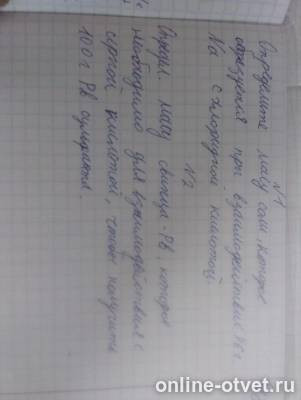 N1
Определите массу соли, которая
образуется при взаимодействии 46 г
Na с хлоридной кислотой
N2
Опред. массу свинца - Pb, которое
необходимо для взаимодействия с
серной кислотой, чтобы получить
100 г Pb сульфата.
online-otvet.ru